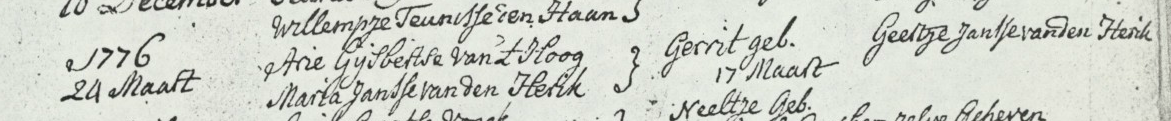 10 December
Willempje Teunisse den Haan }
1776 Arie Gijsbertse van 't Hoog } Gerrit geb. Geertje Jansse vanden Herik
24 Maart Maria Jansse vanden Herik 17 Maart
Neeltje Geb.
zelve Geheven